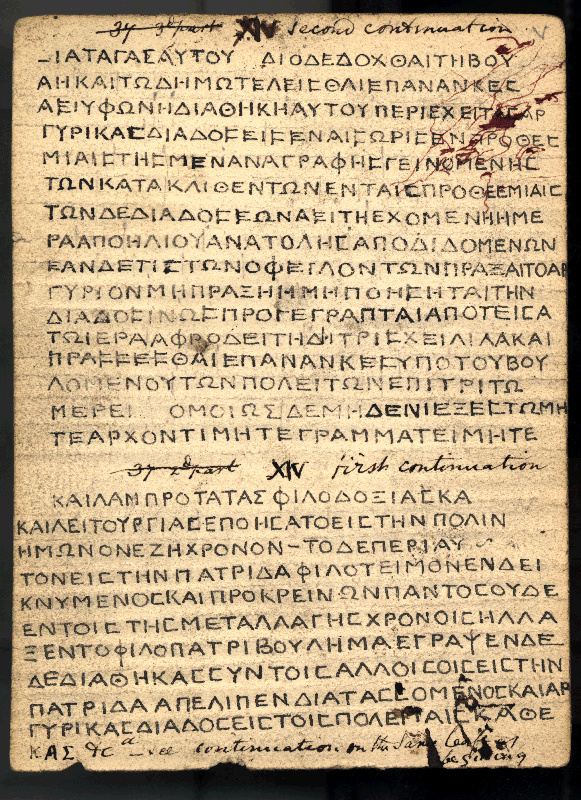 37 3d part XIV second continuation
ΔΙΑΤΑΓΑΣΑΥΤΟΥ ΔΙΟΔΕΔΟΧΘΑΙΤΗΒΟΥ
ΛΗΚΑΙΤΩΔΗΜΩΤΕΛΕΙΣΘΑΙΕΠΑΝΑΝΚΕΣ
ΑΕΙΥΦΩΝΗΔΙΑΘΗΚΗΑΥΤΟΥΠΕΡΙΕΧΕΙΤΑΣΑΡ
ΓΥΡΙΚΑΣΔΙΑΔΟΣΕΙΣΕΝΑΙΣΩΡΙΣΕΝΠΡΟΘΕΣ
ΜΙΑΙΣΤΗΣΜΕΝΑΝΑΓΡΑΦΗΣΓΕΙΝΟΜΕΝΗΣ
ΤΩΝΚΑΤΑΚΛΙΘΕΝΤΩΝΕΝΤΑΙΣΠΡΟΘΕΕΜΙΑΙΣ
ΤΩΝΔΕΔΙΑΔΟΣΕΩΝΑΕΙΤΗΕΧΟΜΕΝΗΗΜΕ
ΡΑΑΠΟΗΛΙΟΥΑΝΑΤΟΛΗΣΑΠΟΔΙΔΟΜΕΝΩΝ
ΕΑΝΔΕΤΙΣΤΩΝΟΦΕΓΛΟΝΤΩΝΠΡΑΞΑΙΤΟΑΡ
ΓΥΡΙΟΝΜΗΠΡΑΞΗΗΜΗΠΟΗΣΗΤΑΙΤΗΝ
ΔΙΑΔΟΣΙΝΩΣΠΡΟΓΕΓΡΑΠΤΑΙΑΠΟΤΕΙΣΑ
ΤΩΙΕΡΑΑΦΡΟΔΕΙΤΗΔΙΤΡΙΣΧΕΙΛΙΛΑΚΑΙ
ΠΡΑΣΣΕΣΘΑΙΕΠΑΝΑΝΚΕΣΥΠΟΤΟΥΒΟΥ
ΛΟΜΕΝΟΥΤΩΝΠΟΛΕΙΤΩΝΕΠΙΤΡΙΤΩ
ΜΕΡΕΙ ΟΜΟΙΩΣΔΕΜΗΔΕΝΙΕΞΕΣΤΩΜΗ
ΤΕΑΡΧΟΝΤΙΜΗΤΕΓΡΑΜΜΑΤΕΙΜΗΤΕ
37 2d part XIV first continuation
ΚΑΙΛΑΜΠΡΟΤΑΤΑΣΦΙΛΟΔΟΞΙΑΣΚΑ
ΚΑΙΛΕΙΤΟΥΡΓΙΑΣΕΠΟΗΣΑΤΟΕΙΣΤΗΝΠΟΛΙΝ
ΗΜΩΝΟΝΕΖΗΧΡΟΝΟΝ-ΤΟΔΕΠΕΡΙΑΥ
ΤΟΝΕΙΣΤΗΝΠΑΤΡΙΔΑΦΙΛΟΤΕΙΜΟΝΕΝΔΕΙ
ΚΝΥΜΕΝΟΣΚΑΙΠΡΟΚΡΕΙΝΩΝΠΑΝΤΟΣΟΥΔΕ
ΕΝΤΟΙΣΤΗΣΜΕΤΑΛΑΓΗΣΧΡΟΝΟΙΣΗΛΛΑ
ΞΕΝΤΟΦΙΛΟΠΑΤΡΙΒΟΥΛΗΜΑΕΓΡΑΨΕΝΔΕ
ΔΕΔΙΑΘΗΚΑΣΣΥΝΤΟΙΣΑΛΛΟΙΣΟΙΣΕΙΣΤΗΝ
ΠΑΤΡΙΔΑΑΠΕΛΙΠΕΝΔΙΑΤΑΣΣΟΜΕΝΟΣΚΑΙΑΡ
ΓΥΡΙΚΑΣΔΙΑΔΟΣΕΙΣΤΟΙΣΠΟΛΕΙΤΑΙΣΚΑΘΕ
ΚΑΣ &c a — see continuation on the same leaf at
beginning